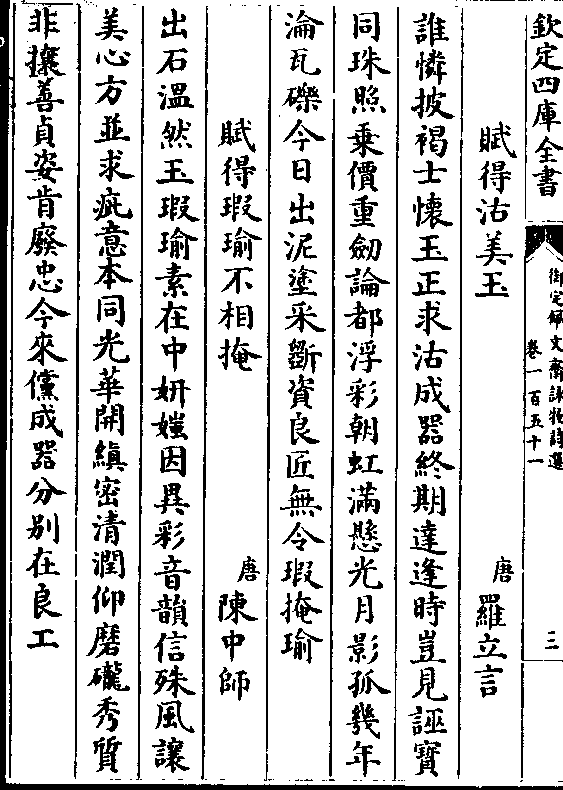 欽定四庫全書
御定佩文齋詠物詩選
卷一百五十一
三
賦得沽美玉
唐羅立言
誰憐披褐士懷玉正求沽成器終期達逢時豈見誣寶
同珠照乗價重劒論都浮彩朝虹滿懸光月影孤幾年
淪瓦礫今日出泥塗采斲資良匠無令瑕掩瑜
賦得瑕瑜不相掩
唐陳中師
出石溫然玉瑕瑜素在中妍媸因異彩音韻信殊風讓
美心方並求疵意本同光華開縝宻清潤仰磨礲秀質
非攘善貞姿肯廢忠今來儻成器分别在良工